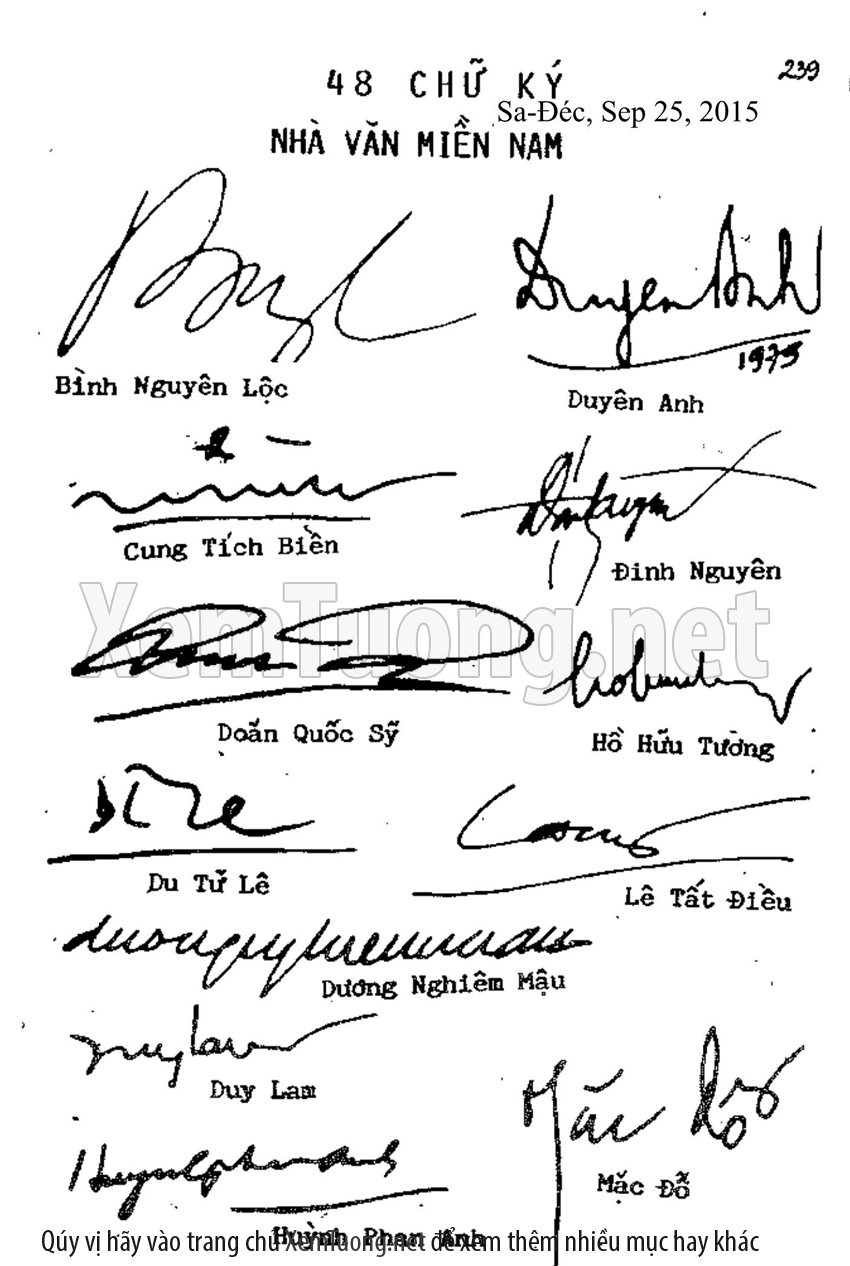 239
48 CHỮ KÝ
Sa-Đéc, Sep 25, 2015
NHÀ VĂN MIỀN NAM
Bình Nguyên Lộc
Duyên Anh
1973
Duyên Anh
Cung Tích Biền
Đinh Nguyên
XemTuong.net
Doãn Quốc Sỹ
Hồ Hữu Tường
Du Tử Lê
Lê Tất Điều
duongnghiemmau
Dương Nghiễm Mậu
duylam
Duy Lam
Mặc Đỗ
Huynhphananh
Mặc Đỗ
Huỳnh Phan Anh
Qúy vị hãy vào trang chủ XemTuong.net để xem thêm nhiều mục hay khác